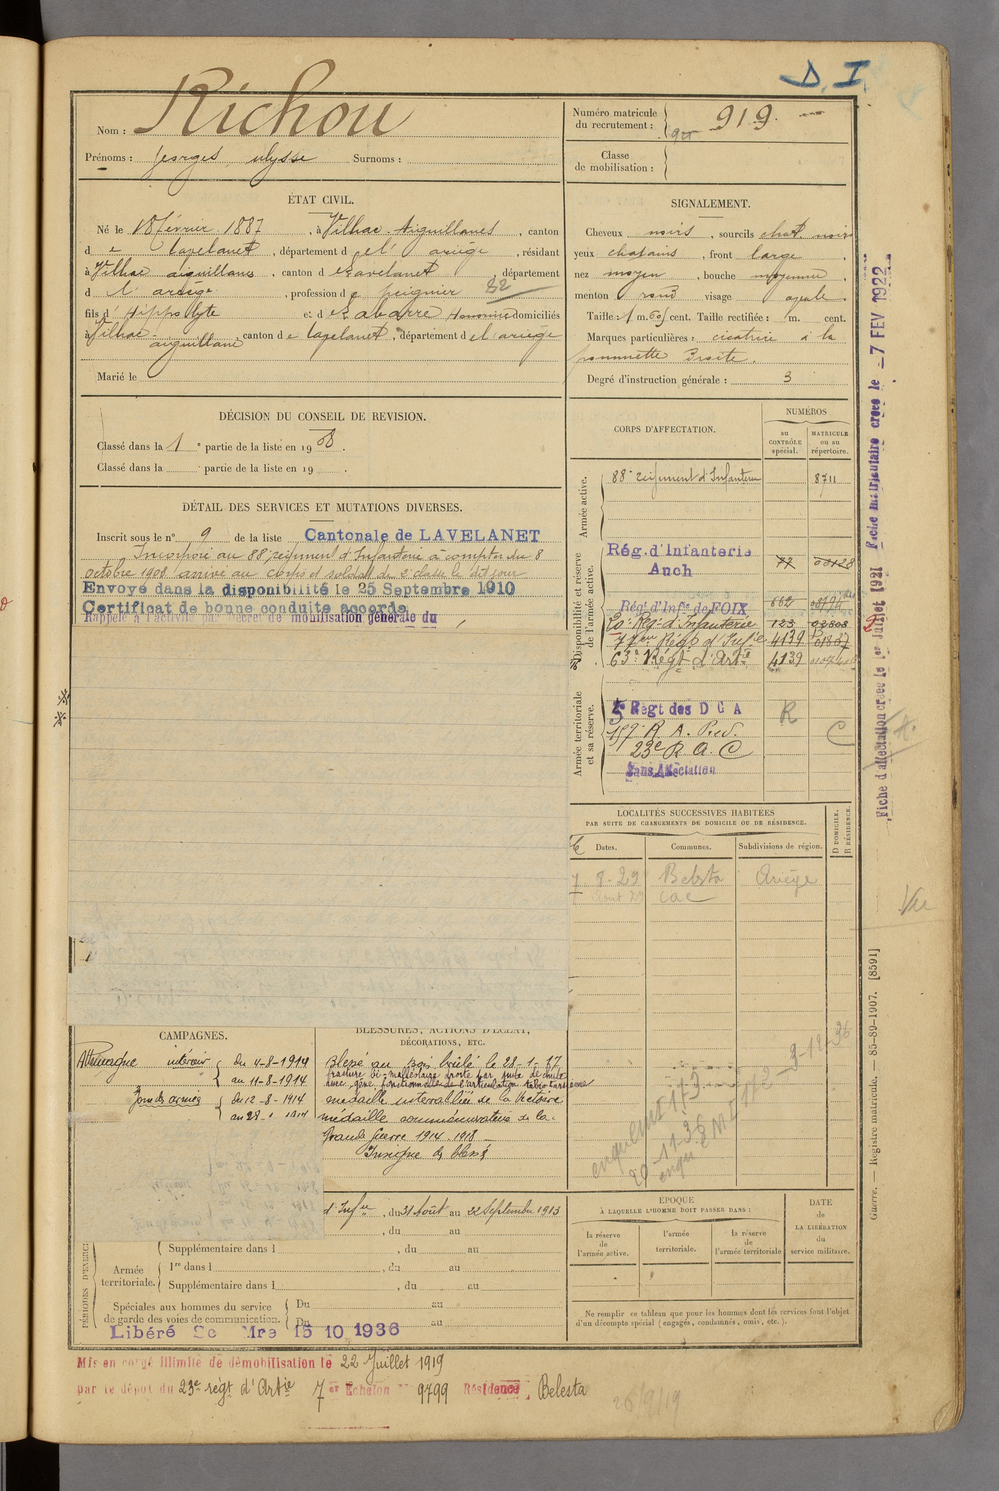 D. I.
Nom : Richou
Prénoms : Georges Ulysse Surnoms :
Numéro matricule du recrutement : 919
Classe de mobilisation :
ÉTAT CIVIL.
Né le 18 février 1887, à Vilhac-Aiguillanes, canton
d e Lavelanet, département d e l'ariège, résidant
à Vilhac aiguillane, canton d e Lavelanet, département
d l'ariège, profession d e peignier 82
fils d' Hippolyte et d e Rabarre Honorine domiciliés
à Vilhac-aiguillane, canton d e Lavelanet, département d e l'ariège
Marié le
DÉCISION DU CONSEIL DE REVISION.
Classé dans la 1e partie de la liste en 1908.
Classé dans la partie de la liste en 19
DÉTAIL DES SERVICES ET MUTATIONS DIVERSES.
Inscrit sous le n° 9 de la liste Cantonale de LAVELANET
Incorporé au 88e régiment d'Infanterie à compter du 8
octobre 1908 arrivé au corps et soldat de 2e classe le dit jour
Envoyé dans la disponibilité le 25 Septembre 1910
Certificat de bonne conduite accordé
Rappelé à l'activité par Décret de mobilisation générale du
SIGNALEMENT.
Cheveux noirs, sourcils chat. noirs
yeux chatains, front large,
nez moyen, bouche moyenne,
menton rond visage ovale.
Taille : 1 m. 60 cent. Taille rectifiée : m. cent.
Marques particulières : cicatrice à la
pommette droite.
Degré d'instruction générale : 3
CORPS D'AFFECTATION.
NUMÉROS
au CONTRÔLE spécial.
MATRICULE ou au répertoire.
Armée active.
88e régiment d'Infanterie 8711
Disponibilité et réserve de l'armée active.
Rég. d'Infanterie Auch 77
Rég. d'Infie de FOIX 662
Rég. d'Infanterie 123 02808
Régt d'Infie 4139
63e Régt d'Artie 4139
Armée territoriale et sa réserve.
5 Régt des D C A R
157e R. A. Péd. C
23e R. A. C
Sans Affectation
LOCALITÉS SUCCESSIVES HABITÉES
PAR SUITE DE CHANGEMENTS DE DOMICILE OU DE RÉSIDENCE.
Dates. Communes. Subdivisions de région. D DOMICILE. R RÉSIDENCE.
8-29 Belesta Ariège
CAMPAGNES.
Allemagne intérieur du 4-8-1914
au 11-8-1914
Zone des armées du 12-8-1914
BLESSURES, ACTIONS D'ÉCLAT,
DÉCORATIONS, ETC.
Blessé au Bois brûlé le 28-1-17
fracture bi-malléolaire droite par suite de chute
avec gêne fonctionnelle de l'articulation tibio tarsienne
médaille interalliée de la Victoire
médaille commémorative de la
Grande Guerre 1914-1918
Insigne des blessés
enquête
20-11-36
9-12-36
PÉRIODES D'EXERCICES
d'Infie, du 31 Août au 22 Septembre 1913
, du au
Supplémentaire dans l , du au
Armée territoriale.
1re dans l , du au
Supplémentaire dans l , du au
Spéciales aux hommes du service de garde des voies de communication.
Du au
Du au
Libéré Sce Mre 15 10 1936
ÉPOQUE
À LAQUELLE L'HOMME DOIT PASSER DANS :
la réserve de l'armée active.
l'armée territoriale.
la réserve de l'armée territoriale
DATE de LA LIBÉRATION du service militaire.
Ne remplir ce tableau que pour les hommes dont les services font l'objet
d'un décompte spécial (engagés, condamnés, omis, etc.).
Mis en congé illimité de démobilisation le 22 Juillet 1919
par le dépôt du 23e régt d'Artie 7er Échelon n° 9799 Résidence Belesta
26/9/19
Fiche d'affectation créée le 1er Juillet 1921 Fiche matriculaire créée le 7 FEV 1922
Vu
Guerre. — Registre matricule. — 85-89-1907. [8591]